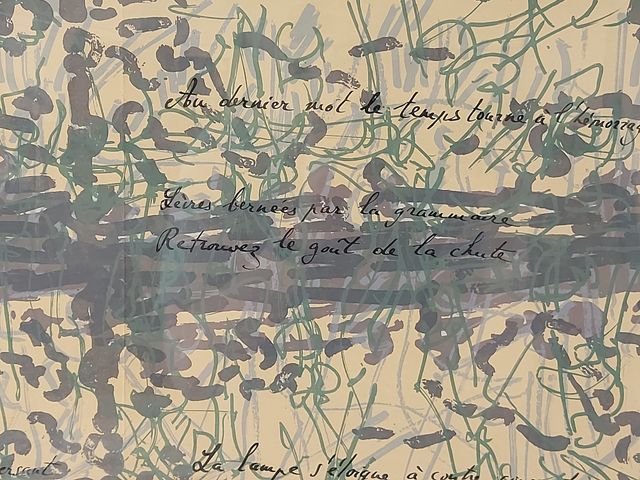 Au dernier mot le temps tourne à l'hémorrag
Lèvres bernées par la grammaire
Retrouvez le goût de la chute
ersant
La lampe s'éloigne à contre